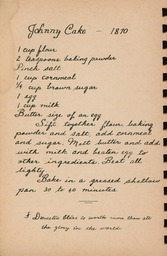 Johnny Cake - 1870
1 cup flour
2 teaspoons baking powder
Pinch salt
1 cup cornmeal
1/4 cup brown sugar
1 egg
1 cup milk
Butter size of an egg
Sift together flour, baking
powder and salt, add cornmeal
and sugar. Melt butter and add
with milk and beaten egg to
other ingredients. Beat all
lightly.
Bake in a greased shallow
pan 30 to 40 minutes
A Domestic Bliss is worth more than all
the glory in the world.